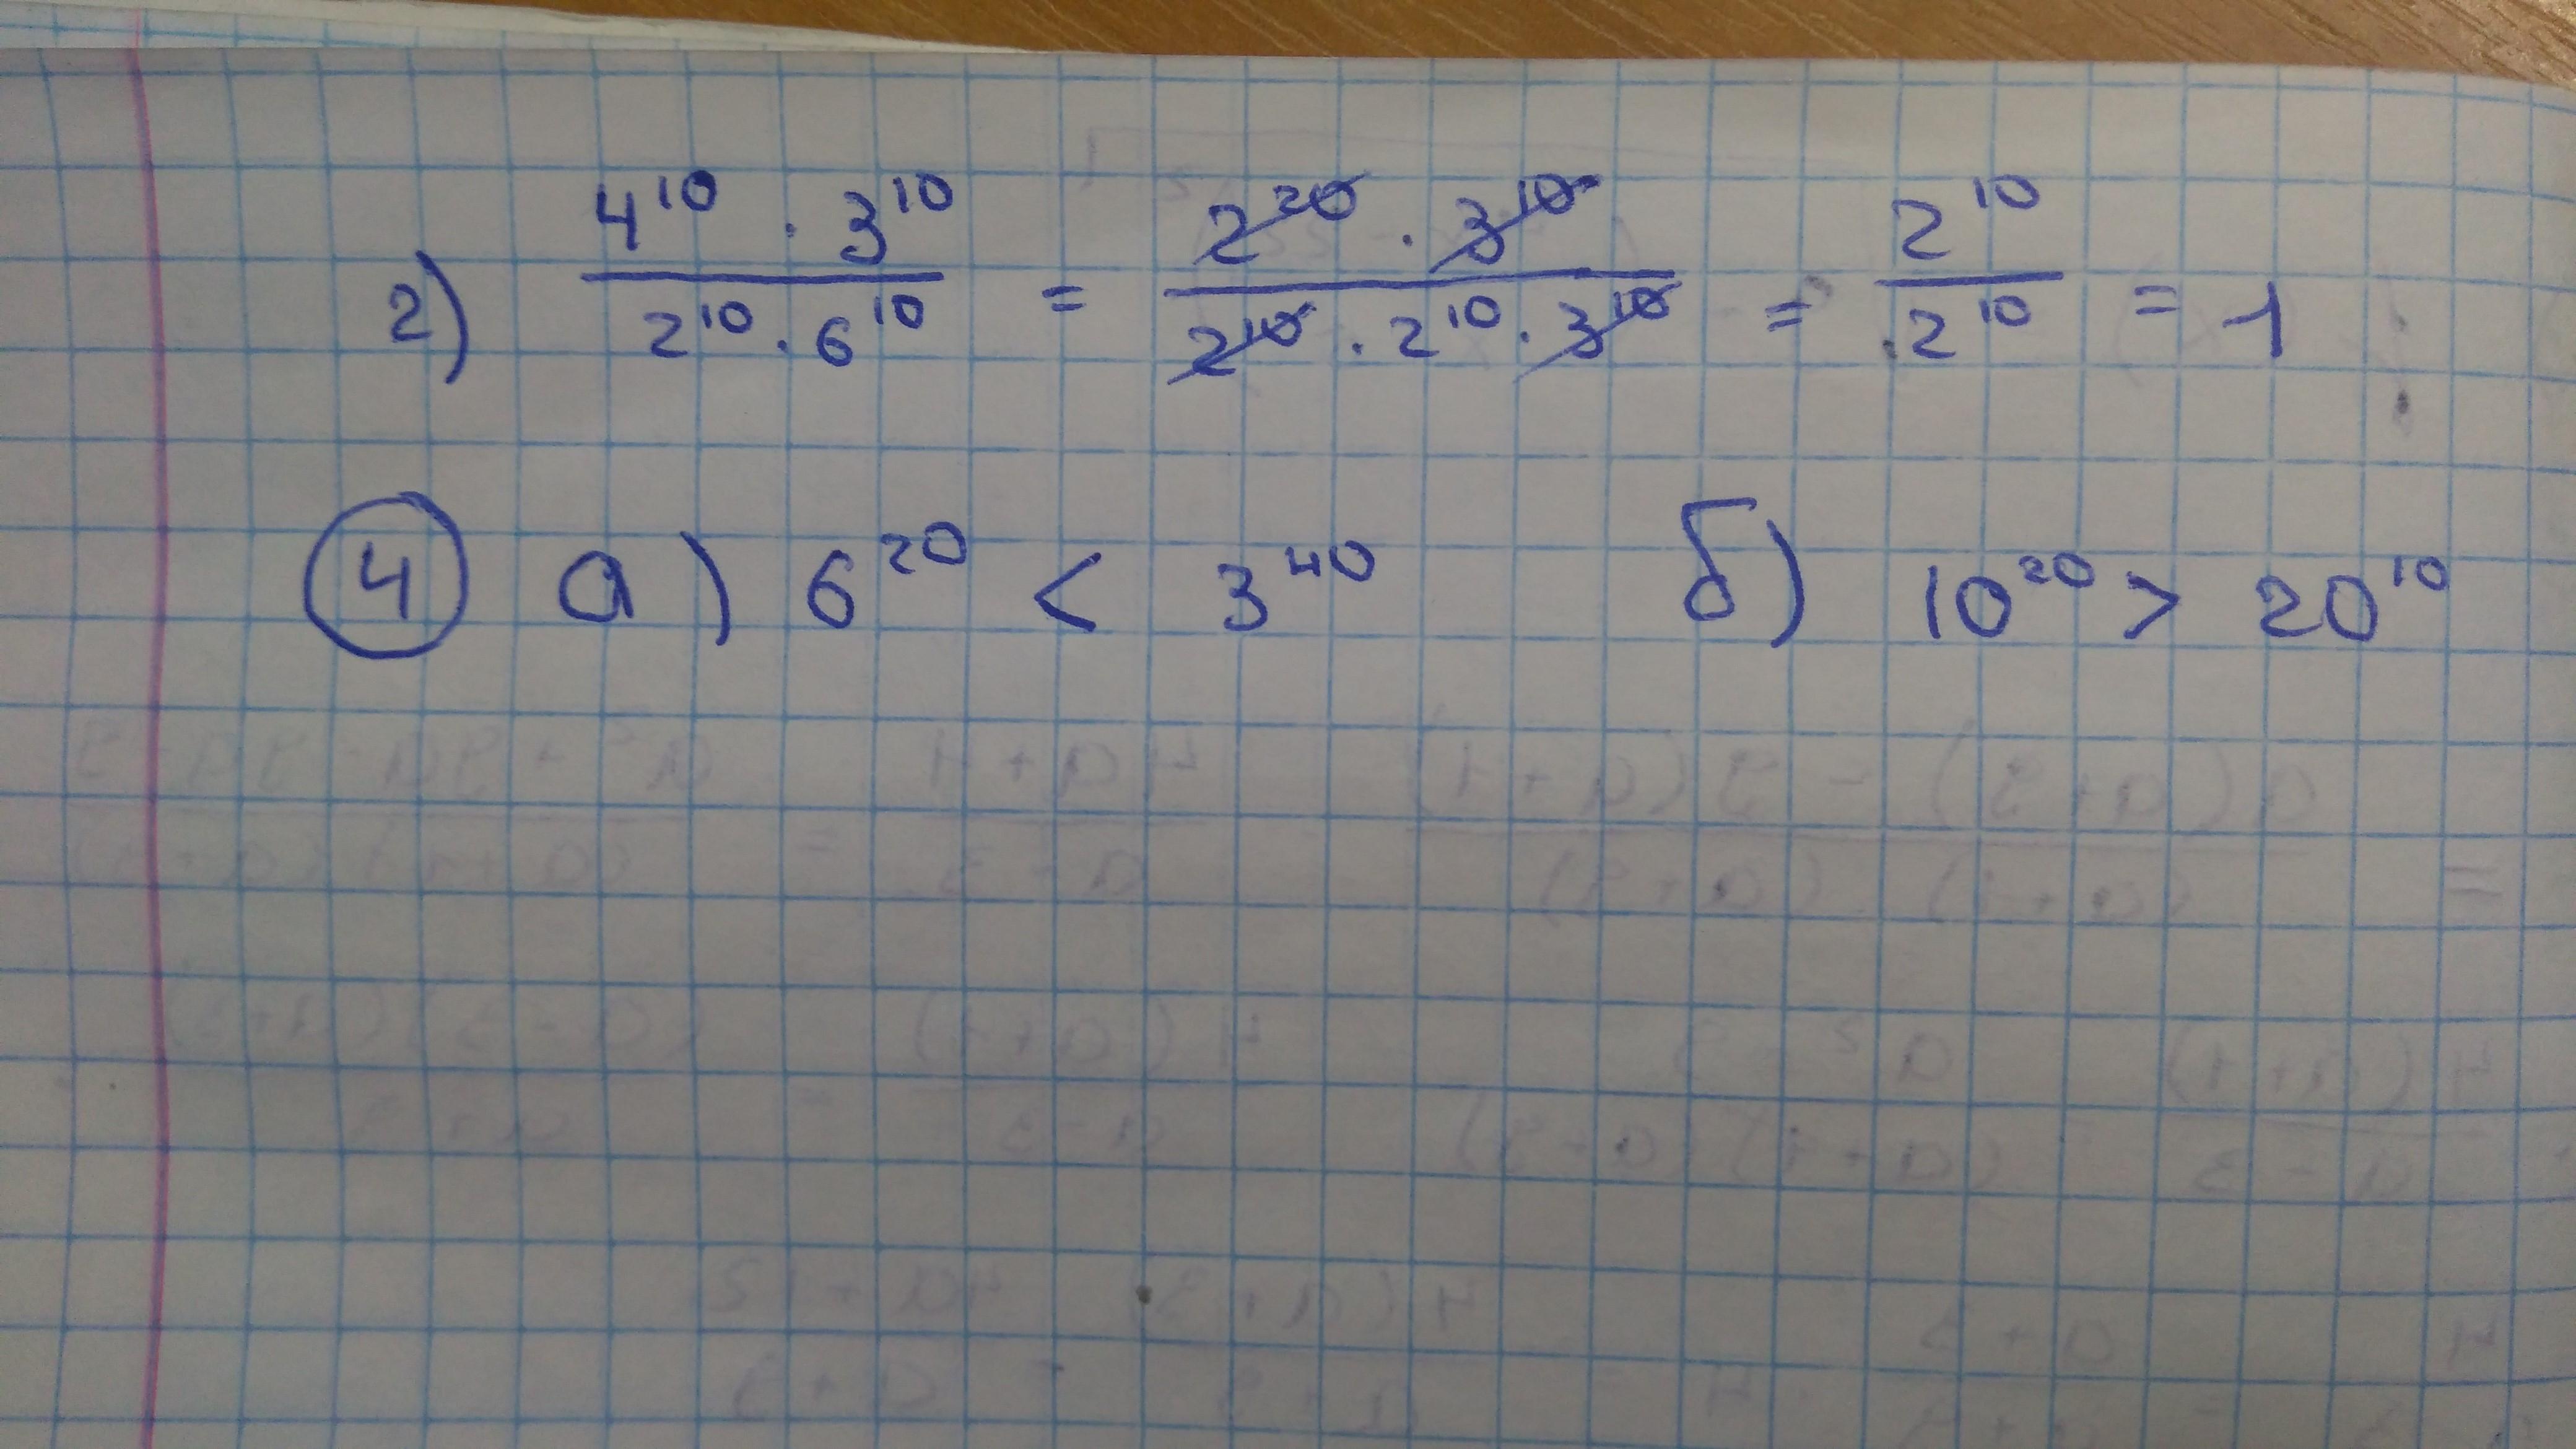 г) 4¹⁰ · 3¹⁰ / 2¹⁰ · 6¹⁰ = 2²⁰ · 3¹⁰ / 2¹⁰ · 2¹⁰ · 3¹⁰ = 2¹⁰ / 2¹⁰ = 1
4 а) 6²⁰ < 3⁴⁰ б) 10²⁰ > 20¹⁰